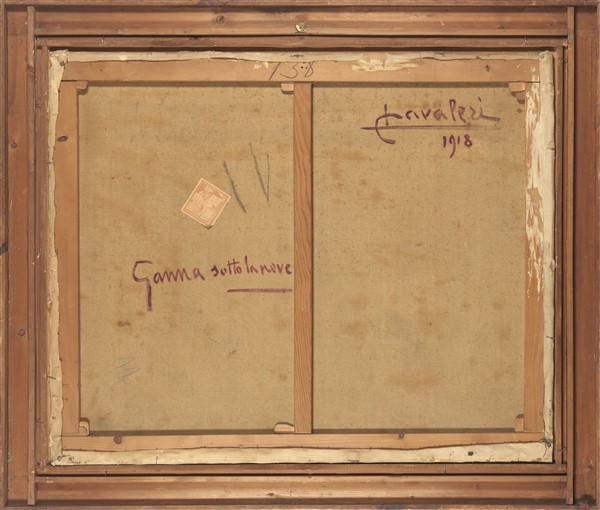 Cavaleri
1918
IV
Ganna sotto la neve